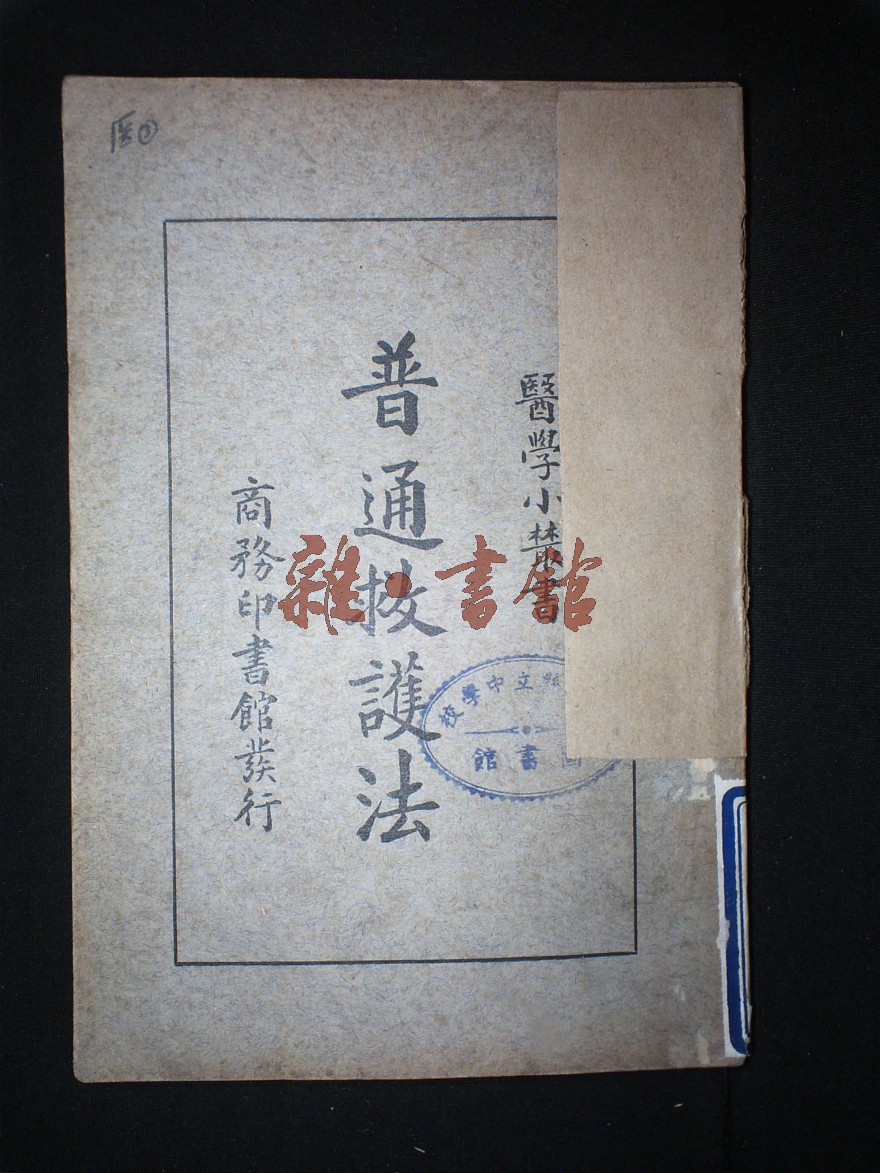 医②
醫學小叢書
普通救護法
商務印書館發行
雜·書館
縣立中學校
圖書館